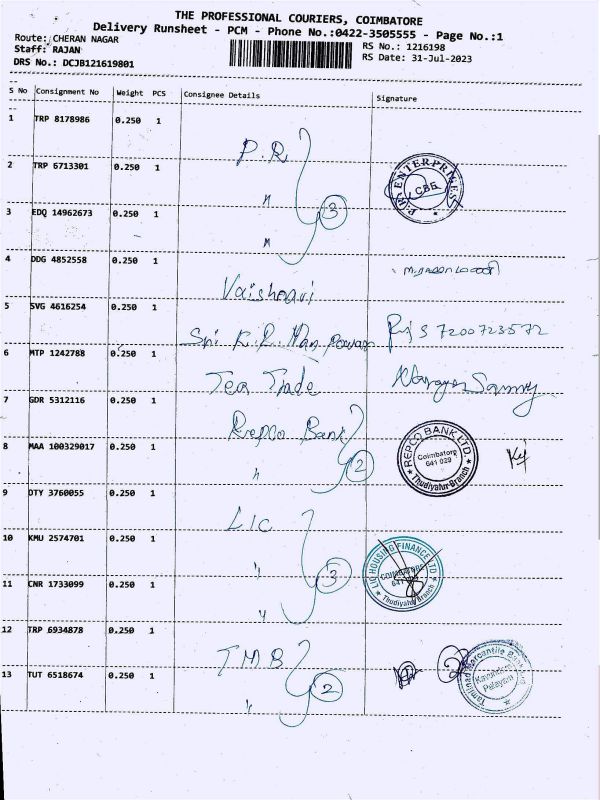 THE PROFESSIONAL COURIERS, COIMBATORE
Delivery Runsheet - PCM - Phone No.:0422-3505555 - Page No.:1
Route: CHERAN NAGAR
RS No.: 1216198
Staff: RAJAN
RS Date: 31-Jul-2023
DRS No.: DCJB121619801
S No Consignment No Weight PCS Consignee Details Signature
1 TRP 8178986 0.250 1 P.R
2 TRP 6713301 0.250 1 " P.R. ENTERPRISES CBE
3 EDQ 14962673 0.250 1 " 3
4 DDG 4852558 0.250 1 Vaishnavi
5 SVG 4616254 0.250 1 Sri K.R. Man power 7200723572
6 MTP 1242788 0.250 1 Tea Trade
7 GDR 5312116 0.250 1 Repco Bank
8 MAA 100329017 0.250 1 " 2 REPCO BANK LTD. Coimbatore 641 029 Thudiyalur Branch
9 DTY 3760055 0.250 1 LIC
10 KMU 2574701 0.250 1 " 3 LIC HOUSING FINANCE LTD COIMBATORE Thudiyalur Branch
11 CNR 1733099 0.250 1 "
12 TRP 6934878 0.250 1 TMB
13 TUT 6518674 0.250 1 " 2 Tamilnad Mercantile Bank Kavundam Palayam